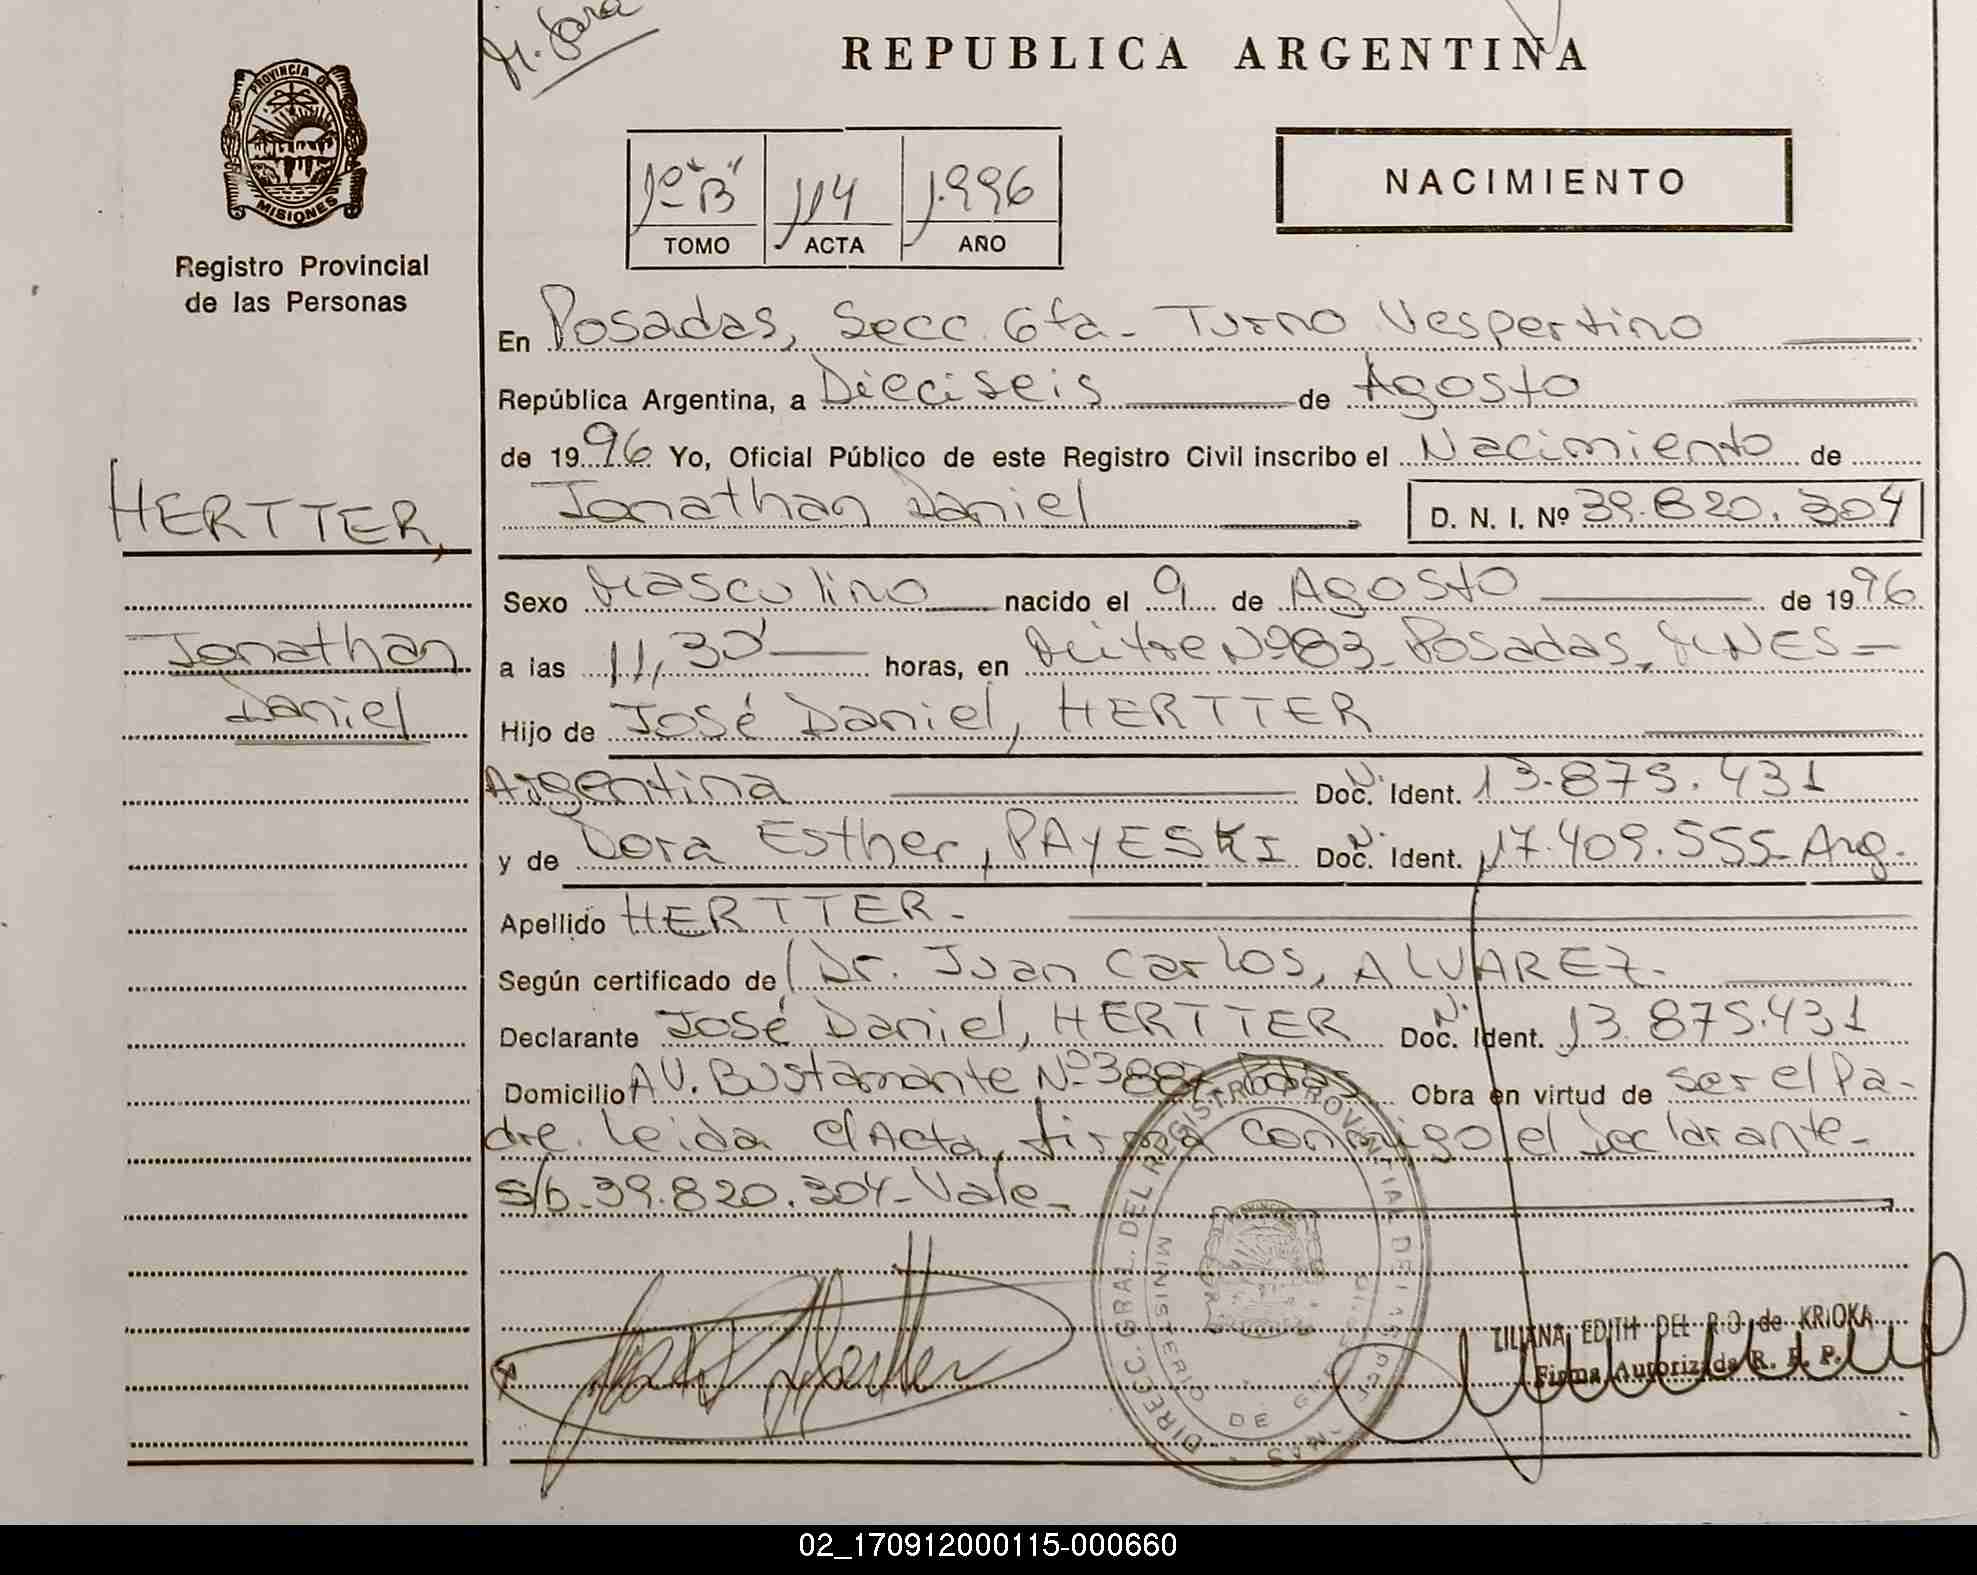 M. Jara
REPUBLICA ARGENTINA
PROVINCIA DE
MISIONES
Registro Provincial
de las Personas
1º "B" 114 1.996
TOMO ACTA AÑO
NACIMIENTO
En Posadas, Secc. 6ta - Turno Vespertino
República Argentina, a Dieciseis de Agosto
de 1996 Yo, Oficial Público de este Registro Civil inscribo el Nacimiento de
Jonathan Daniel D. N. I. Nº 39.820.304
HERTTER,
Jonathan
Daniel
Sexo Masculino nacido el 9 de Agosto de 1996
a las 11,30' horas, en Mitre Nº 83 - Posadas, MNES =
Hijo de José Daniel, HERTTER
Argentina Doc. N. Ident. 13.875.431
y de Dora Esther, PAYESKI Doc. N. Ident. 17.409.555 - Arg.
Apellido HERTTER -
Según certificado de Dr. Juan Carlos, ALVAREZ -
Declarante José Daniel, HERTTER Doc. N. Ident. 13.875.431
Domicilio AV. Bustamante Nº 3887 Pdas Obra en virtud de ser el Pa-
dre. Leida el Acta, firma conmigo el Declarante -
s/b - 39.820.304 - Vale -
DIRECC. GRAL. DEL REGISTRO PROVINCIAL DE LAS PERSONAS
MINISTERIO DE
LILIANA EDITH DEL RIO de KRIOKA
Firma Autorizada R. P. P.
02_170912000115-000660